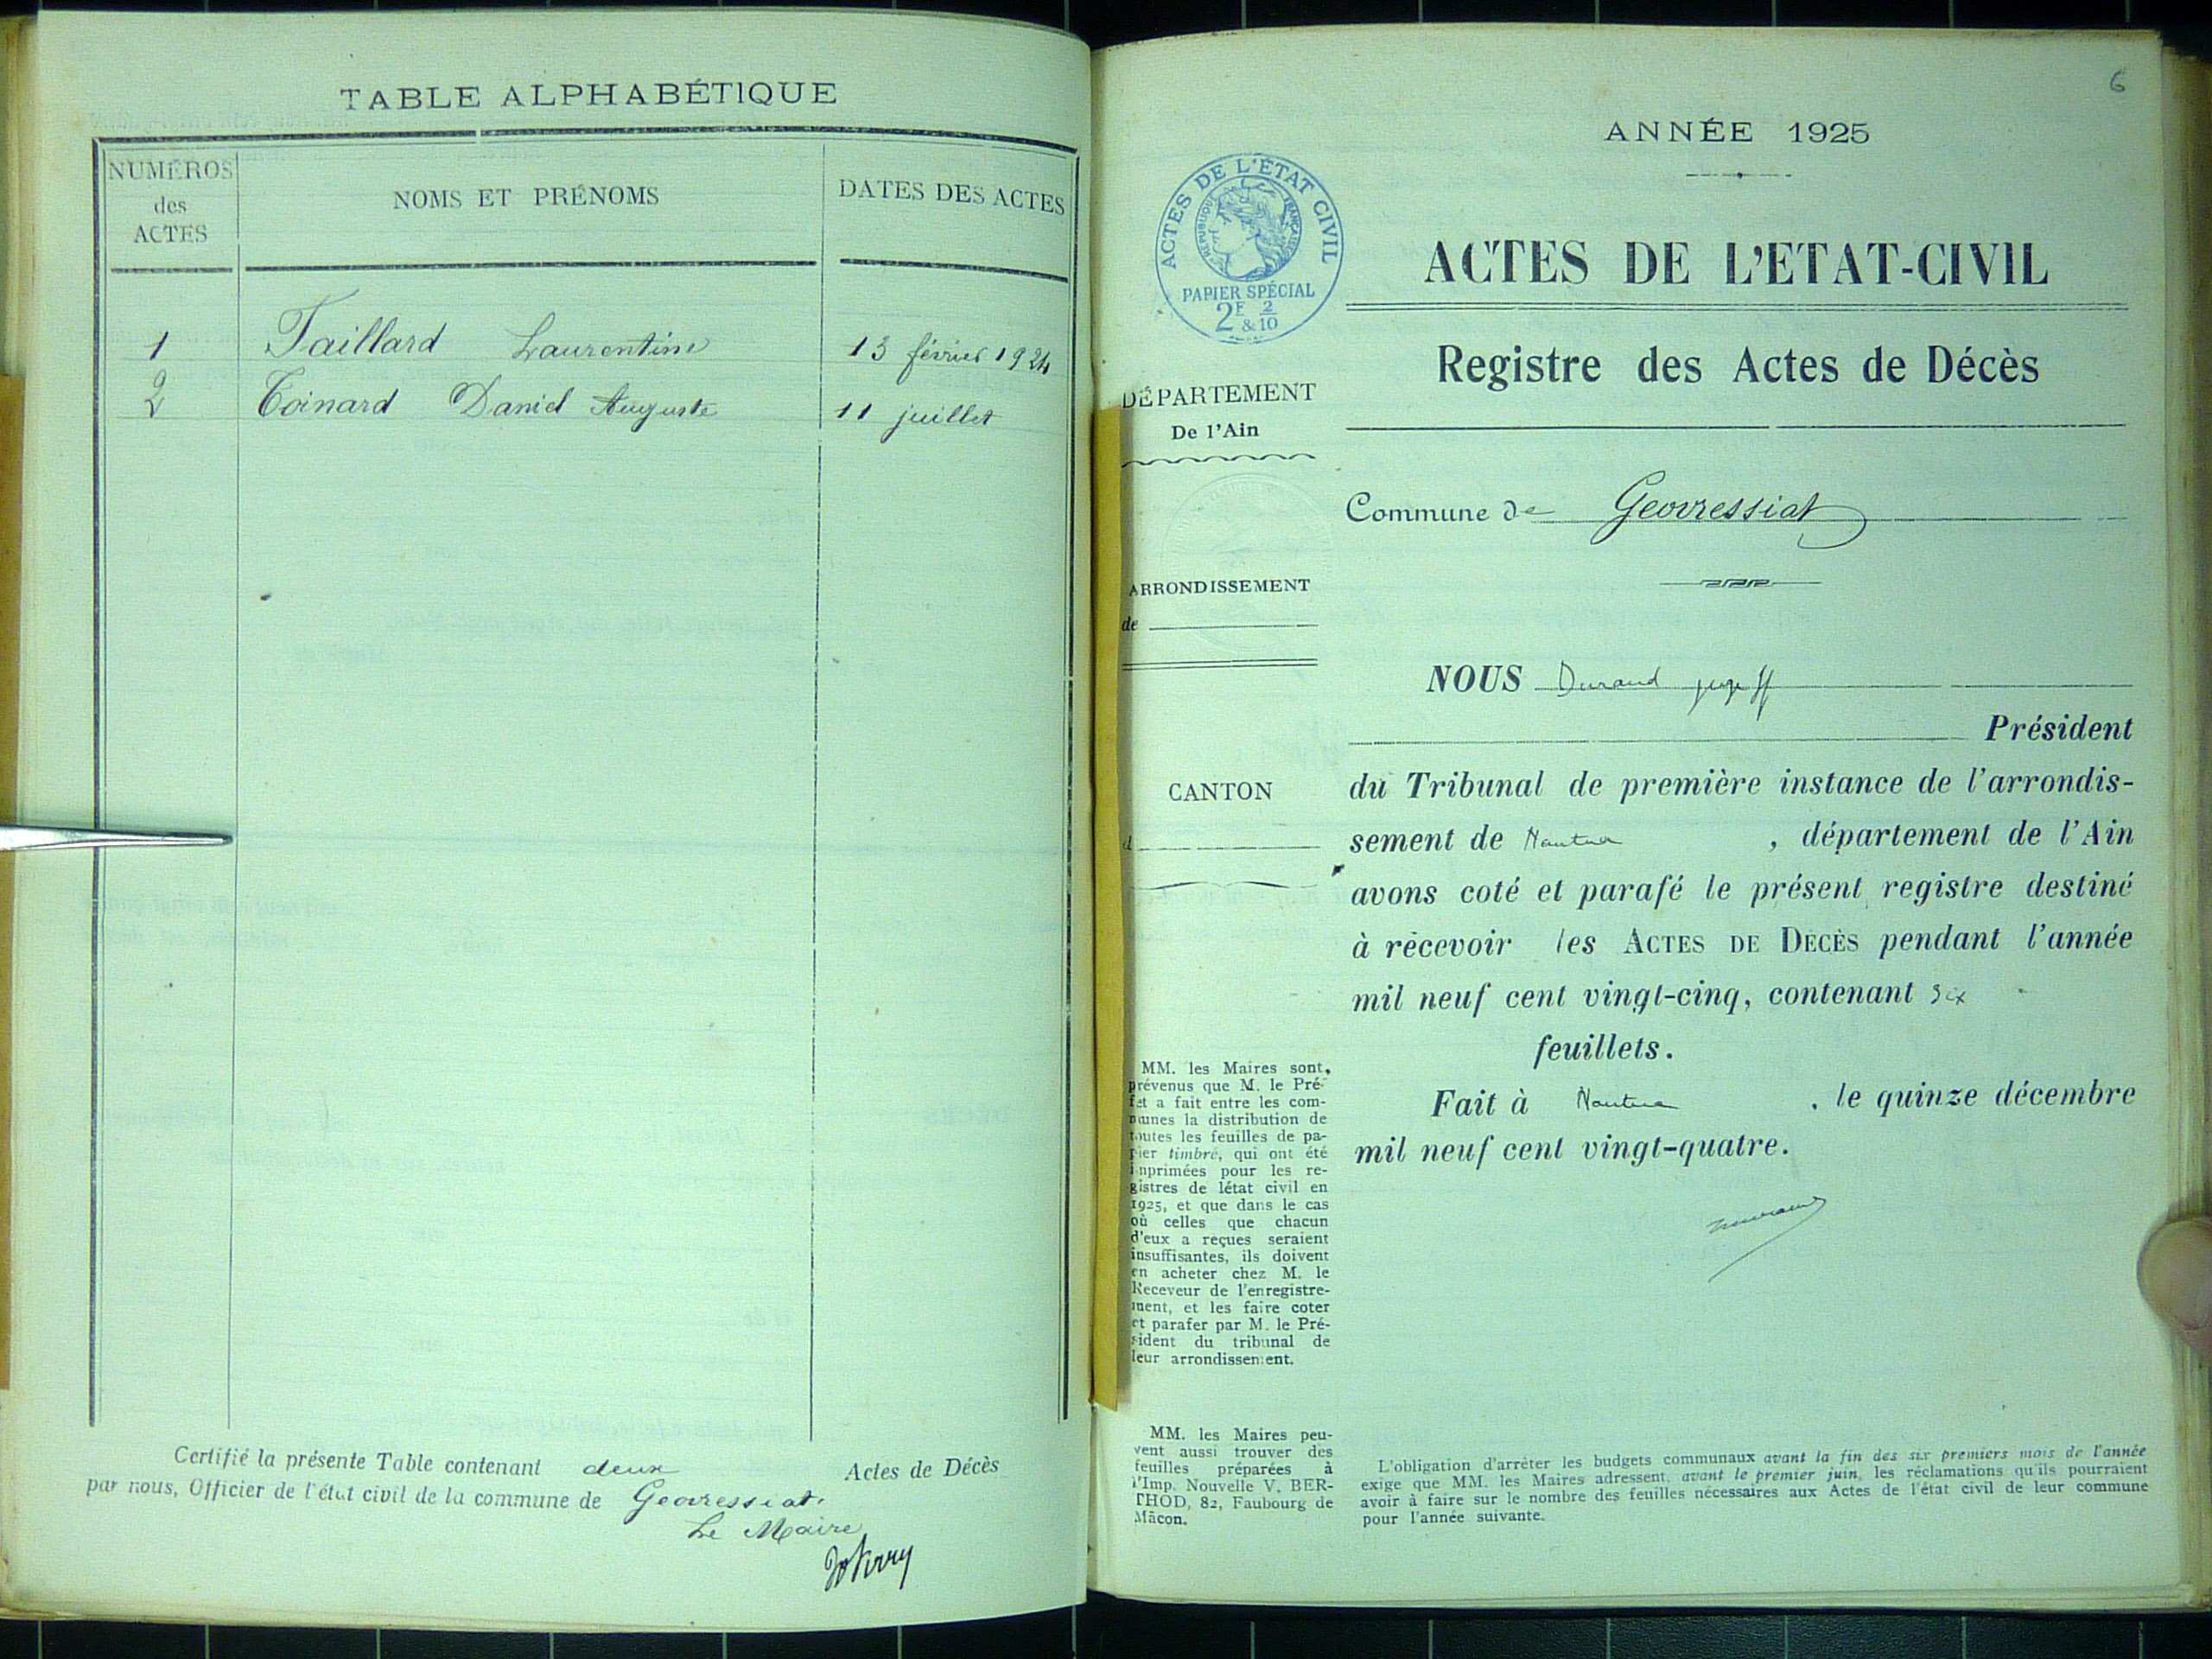 TABLE ALPHABÉTIQUE
NUMÉROS
des
ACTES
NOMS ET PRÉNOMS
DATES DES ACTES
1 Taillard Laurentine 13 février 1924
2 Coinard Daniel Auguste 11 juillet
Certifié la présente Table contenant deux Actes de Décès
par nous, Officier de l'état civil de la commune de Geovressiat.
Le Maire
6
ANNÉE 1925
ACTES DE L'ÉTAT CIVIL
RÉPUBLIQUE FRANÇAISE
PAPIER SPÉCIAL
2F & 2/10
ACTES DE L'ETAT-CIVIL
Registre des Actes de Décès
DÉPARTEMENT
De l'Ain
Commune de Geovressiat
ARRONDISSEMENT
de
NOUS Durand juge ff
Président
CANTON
d
du Tribunal de première instance de l'arrondis-
sement de Nantua , département de l'Ain
avons coté et parafé le présent registre destiné
à recevoir les ACTES DE DÉCÈS pendant l'année
mil neuf cent vingt-cinq, contenant six
feuillets.
Fait à Nantua , le quinze décembre
mil neuf cent vingt-quatre.
MM. les Maires sont
prévenus que M. le Pré-
fet a fait entre les com-
munes la distribution de
toutes les feuilles de pa-
pier timbré, qui ont été
imprimées pour les re-
gistres de létat civil en
1925, et que dans le cas
où celles que chacun
d'eux a reçues seraient
insuffisantes, ils doivent
en acheter chez M. le
Receveur de l'enregistre-
ment, et les faire coter
et parafer par M. le Pré-
sident du tribunal de
leur arrondissement.
MM. les Maires peu-
vent aussi trouver des
feuilles préparées à
l'Imp. Nouvelle V. BER-
THOD, 82, Faubourg de
Mâcon.
L'obligation d'arrêter les budgets communaux avant la fin des six premiers mois de l'année
exige que MM. les Maires adressent, avant le premier juin, les réclamations qu'ils pourraient
avoir à faire sur le nombre des feuilles nécessaires aux Actes de l'état civil de leur commune
pour l'année suivante.